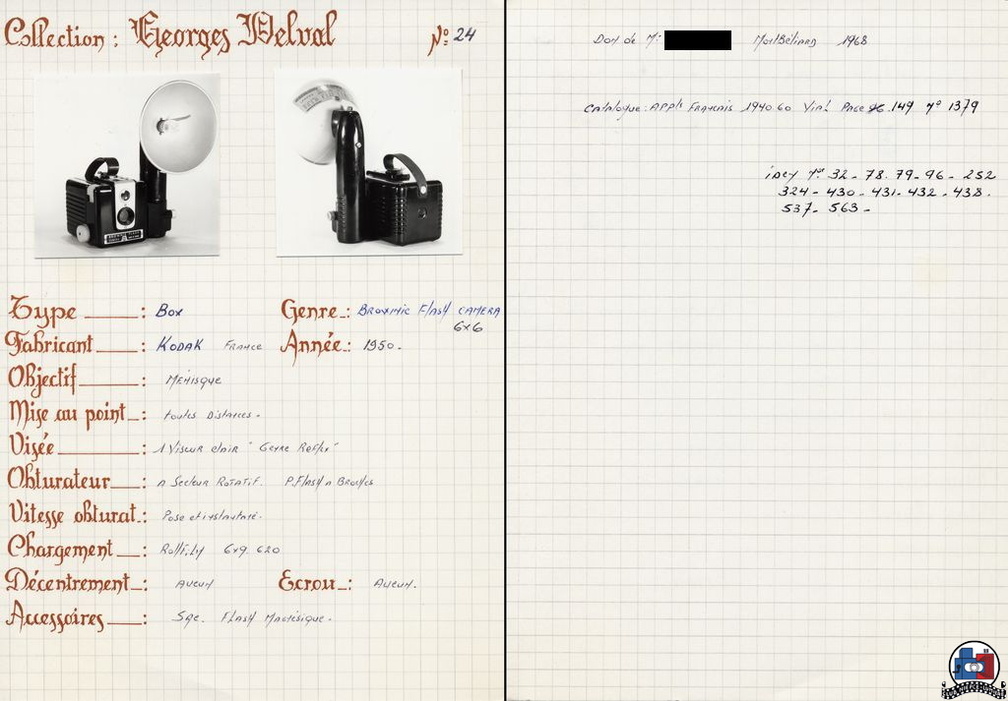 Collection : Georges Delval Nº 24
Type : Box Genre : Brownie Flash CAMERA
6x6
Fabricant : KODAK France Année : 1950.
Objectif : Ménisque
Mise au point : toutes Distances.
Visée : 1 Viseur clair "Genre Reflex"
Obturateur : a Secteur Rotatif. P.Flash a Broches
Vitesse obturat : Pose et instantané.
Chargement : Rollfilm 6x9 620
Décentrement : Aucun Ecrou : Aucun.
Accessoires : Sac. Flash Magnésique.
Don de Mr Montbéliard 1968
Catalogue: Appls Français 1940.60 Vial Page 149 nº 1379
idem Nos 32 - 78. 79 - 96 - 252
324 - 430 - 431 - 432 - 438.
537 - 563 -